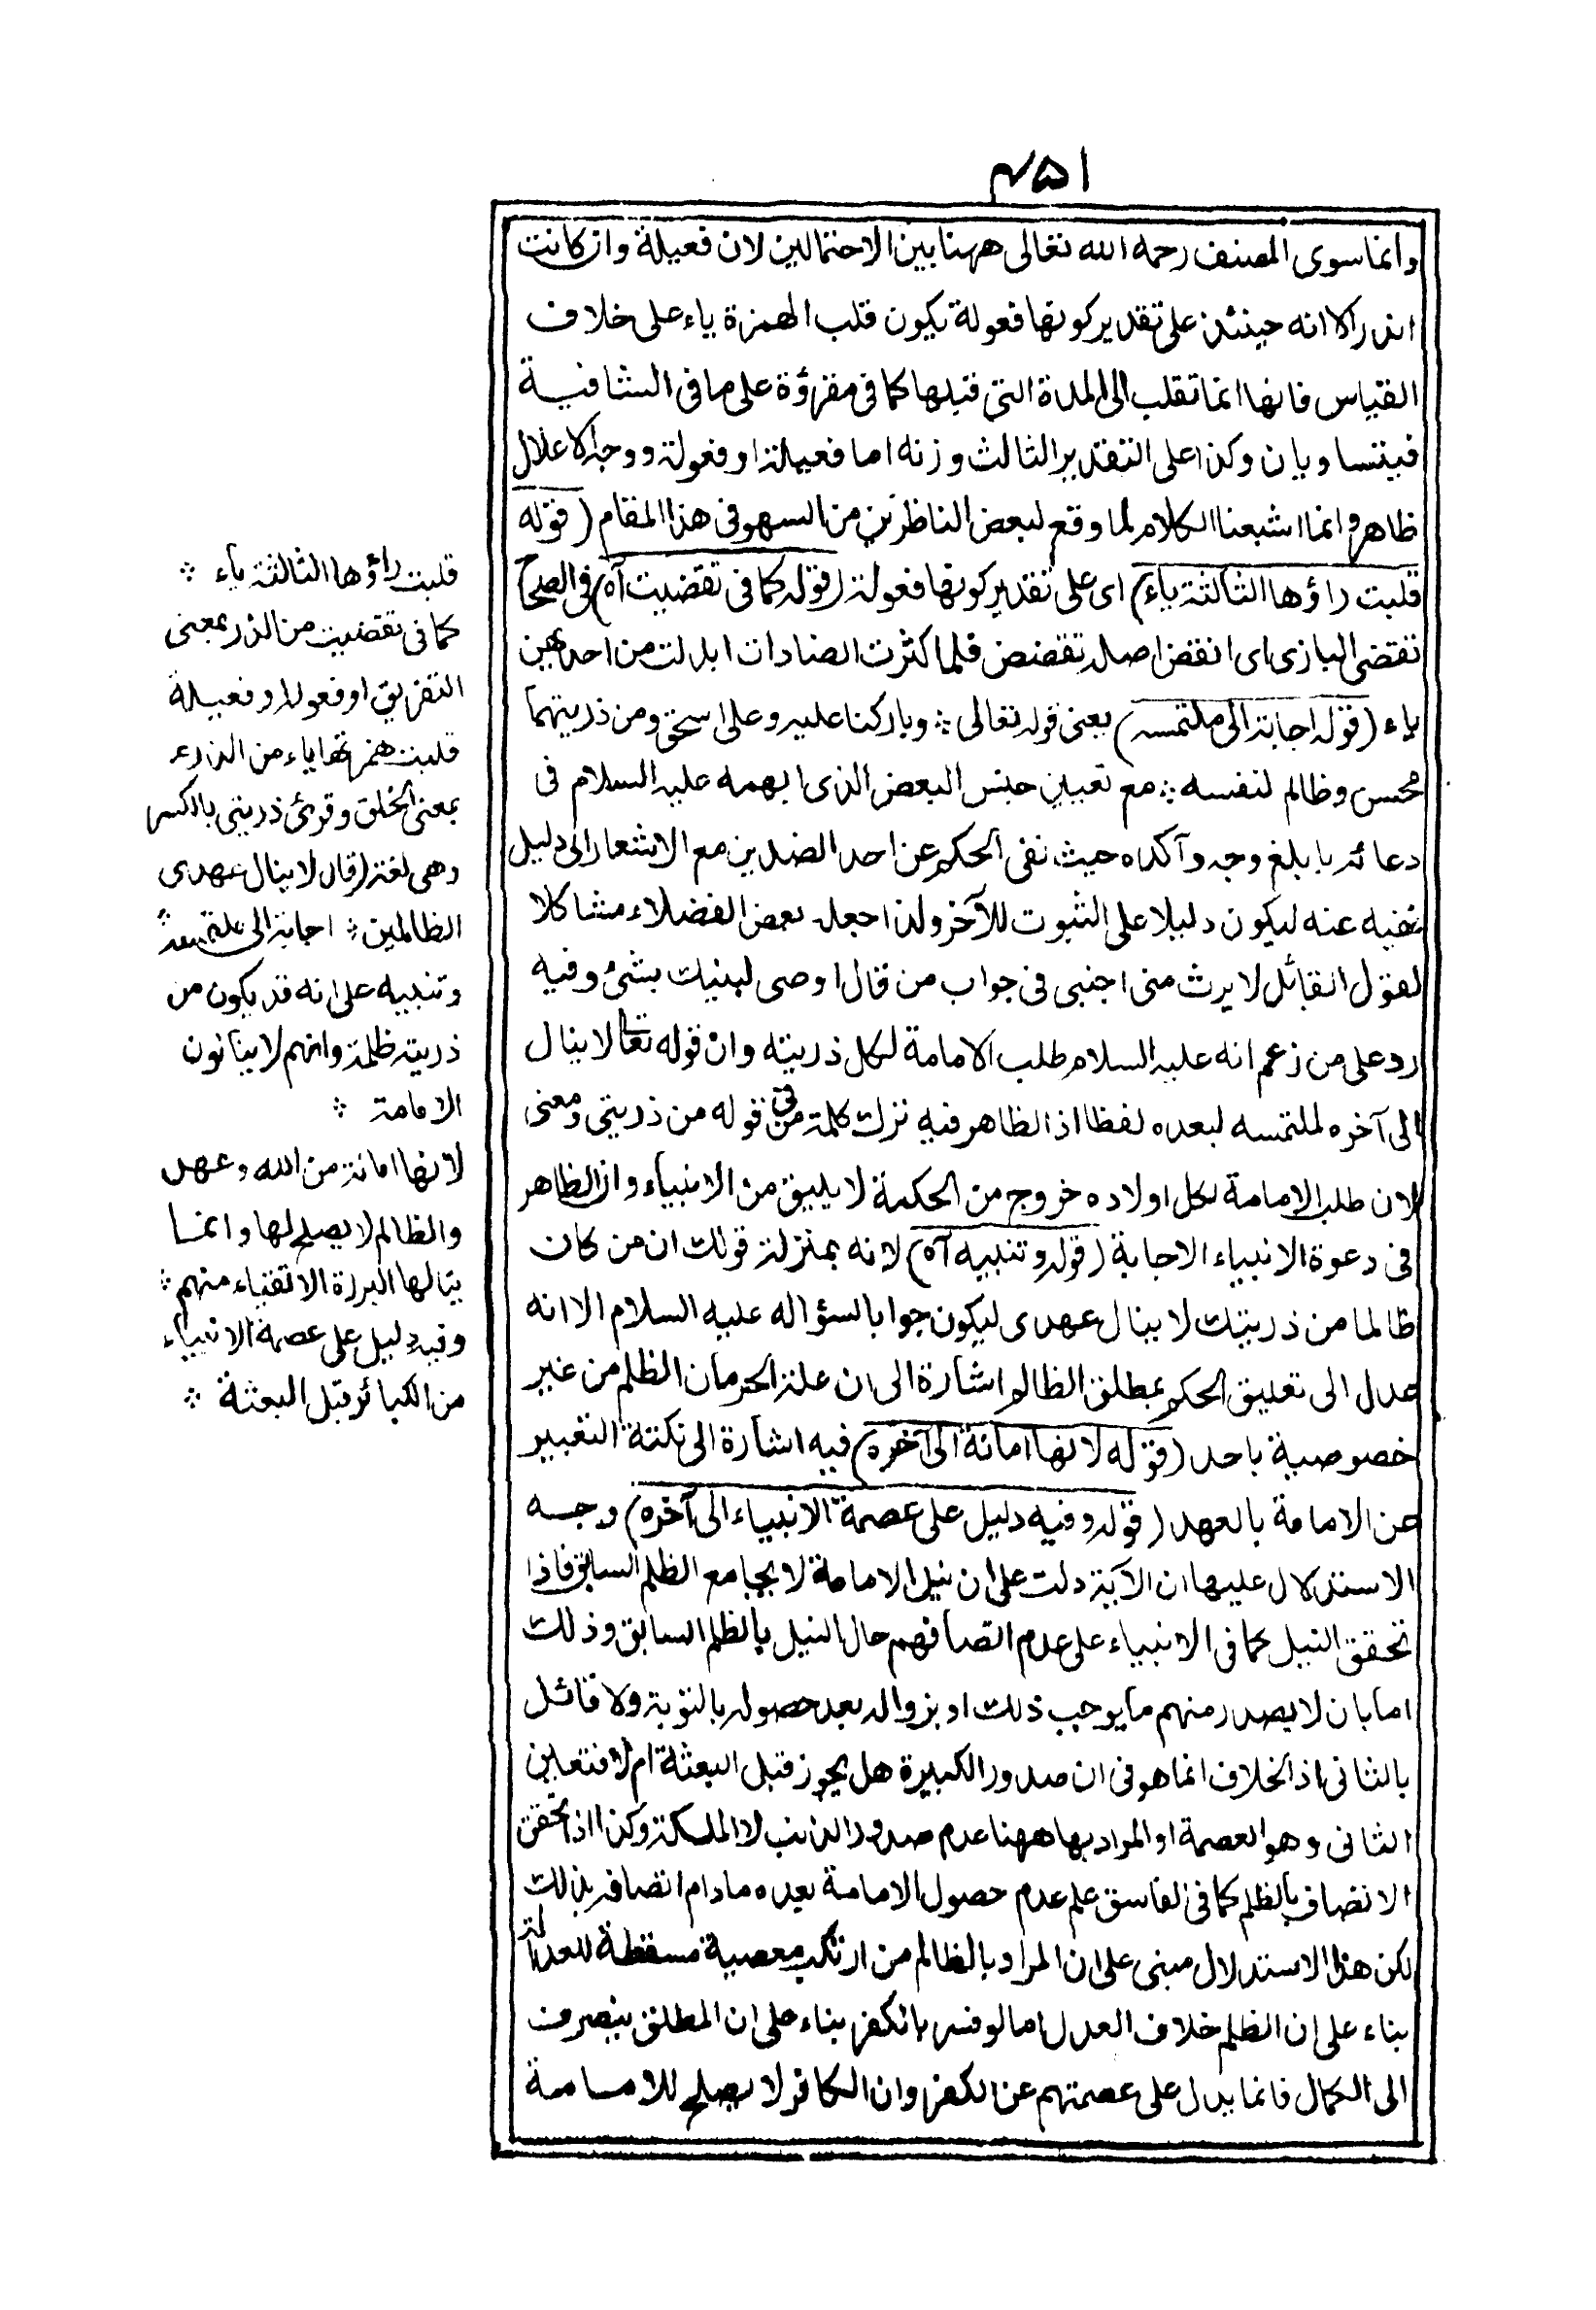 ٤٥١
وانما سوى المصنف رحمه الله تعالى ههنا بين الاحتمالين لان فعيلة وان كانت
اندر الا انه حينئذ على تقدير كونها فعولة يكون قلب الهمزة ياء على خلاف
القياس فانها انما تقلب الى المدة التى قبلها كما فى مقروؤة على ما فى الشافية
فيتساويان وكذا على التقدير الثالث وزنه اما فعيلة او فعولة ووجه الاعلال
ظاهر وانما اشبعنا الكلام لما وقع لبعض الناظرين من السهو فى هذا المقام (قوله
قلبت راؤها الثالثة ياء) اى على تقدير كونها فعولة (قوله كما فى تقضيت آه) فى الصحاح
تقضى البازى اى انقض اصله تقضض فلما كثرت الضادات ابدلت من احدهن
ياء (قوله اجابة الى ملتمسه) يعنى قوله تعالى ⁂ وباركنا عليه وعلى اسحق ومن ذريتهما
محسن وظالم لنفسه ⁂ مع تعيين جنس البعض الذى ابهمه عليه السلام فى
دعائه بابلغ وجه وآكده حيث نفى الحكم عن احد الضدين مع الاشعار الى دليل
نفيه عنه ليكون دليلا على الثبوت للآخر ولذا جعله بعض الفضلاء مشاكلا
لقول القائل لا يرث منى اجنبى فى جواب من قال اوصى لبنيك بشئ وفيه
رد على من زعم انه عليه السلام طلب الامامة لكل ذريته وان قوله تعا لا ينال
الى آخره لملتمسه لبعده لفظا اذ الظاهر فيه ترك كلمة من فى قوله من ذريتى ومعنى
لان طلب الامامة لكل اولاده خروج من الحكمة لا يليق من الانبياء وان الظاهر
فى دعوة الانبياء الاجابة (قوله وتنبيه آه) لانه بمنزلة قولك ان من كان
ظالما من ذريتك لا ينال عهدى ليكون جوابا لسؤاله عليه السلام الا انه
عدل الى تعليق الحكم بمطلق الظالم اشارة الى ان علة الحرمان الظلم من غير
خصوصية باحد (قوله لانها امانة الى آخره) فيه اشارة الى نكتة التعبير
عن الامامة بالعهد (قوله وفيه دليل على عصمة الانبياء الى آخره) وجه
الاستدلال عليها ان الآية دلت على ان نيل الامامة لا يجامع الظلم السابق فاذا
تحقق النيل كما فى الانبياء على عدم اتصافهم حال النيل بالظلم السابق وذلك
اما بان لا يصدر منهم ما يوجب ذلك او بزواله بعد حصوله بالتوبة ولا قائل
بالثانى اذ الخلاف انما هو فى ان صدور الكبيرة هل يجوز قبل البعثة ام لا فتعين
الثانى وهو العصمة او المراد بها ههنا عدم صدور الذنب لا الملكة وكذا اذا تحقق
الاتصاف بالظلم كما فى الفاسق علم عدم حصول الامامة بعده ما دام اتصافه بذلك
لكن هذا الاستدلال مبنى على ان المراد بالظالم من ارتكب معصية مسقطة للعدالة
بناء على ان الظلم خلاف العدل اما لو فسر بالكفر بناء على ان المطلق ينصرف
الى الكمال فانما يدل على عصمتهم عن الكفر وان الكافر لا يصلح للامامة
قلبت راؤها الثالثة ياء ⁂
كما فى تقضيت من الذر بمعنى
التفريق او فعولة او فعيلة
قلبت همزتها ياء من الذرء
بمعنى الخلق وقرئ ذريتى بالكسر
وهى لغة (قال لا ينال عهدى
الظالمين ⁂ اجابة الى ملتمسه ⁂
وتنبيه على انه قد يكون من
ذريته ظلمة وانهم لا ينالون
الامامة ⁂
لانها امانة من الله وعهد
والظالم لا يصلح لها وانما
ينالها البررة الاتقياء منهم ⁂
وفيه دليل على عصمة الانبياء
من الكبائر قبل البعثة ⁂